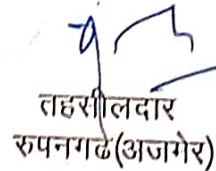 तहसीलदार
रुपनगढ (अजमेर)